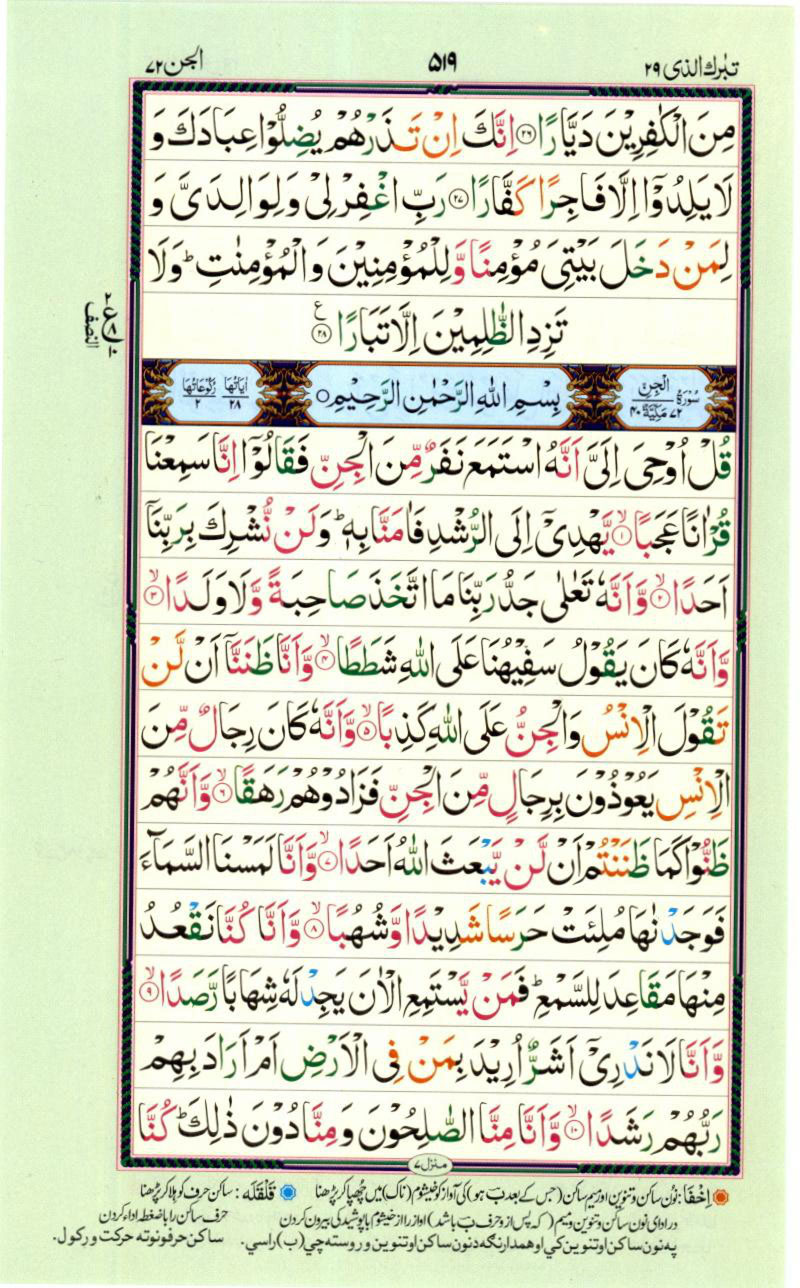 تبٰرك الذی ۲۹ ۵۱۹ الجن ۷۲
مِنَ الْكٰفِرِیْنَ دَیَّارًا ۲۶ اِنَّكَ اِنْ تَذَرْهُمْ یُضِلُّوْا عِبَادَكَ وَ
لَا یَلِدُوْۤا اِلَّا فَاجِرًا كَفَّارًا ۲۷ رَبِّ اغْفِرْ لِیْ وَ لِوَالِدَیَّ وَ
لِمَنْ دَخَلَ بَیْتِیَ مُؤْمِنًا وَّ لِلْمُؤْمِنِیْنَ وَ الْمُؤْمِنٰتِ ؕ وَ لَا
تَزِدِ الظّٰلِمِیْنَ اِلَّا تَبَارًا ۲۸ ع
النصف
سُوْرَةُ الْجِنِّ ۷۲ مَكِّیَّةٌ ۴۰ بِسْمِ اللّٰهِ الرَّحْمٰنِ الرَّحِیْمِ اٰیَاتُهَا ۲۸ رُكُوْعَاتُهَا ۲
قُلْ اُوْحِیَ اِلَیَّ اَنَّهُ اسْتَمَعَ نَفَرٌ مِّنَ الْجِنِّ فَقَالُوْۤا اِنَّا سَمِعْنَا
قُرْاٰنًا عَجَبًا ۱ۙ یَّهْدِیْۤ اِلَی الرُّشْدِ فَاٰمَنَّا بِهٖ ؕ وَ لَنْ نُّشْرِكَ بِرَبِّنَاۤ
اَحَدًا ۲ۙ وَّ اَنَّهٗ تَعٰلٰی جَدُّ رَبِّنَا مَا اتَّخَذَ صَاحِبَةً وَّ لَا وَلَدًا ۳ۙ
وَّ اَنَّهٗ كَانَ یَقُوْلُ سَفِیْهُنَا عَلَی اللّٰهِ شَطَطًا ۴ۙ وَّ اَنَّا ظَنَنَّاۤ اَنْ لَّنْ
تَقُوْلَ الْاِنْسُ وَ الْجِنُّ عَلَی اللّٰهِ كَذِبًا ۵ۙ وَّ اَنَّهٗ كَانَ رِجَالٌ مِّنَ
الْاِنْسِ یَعُوْذُوْنَ بِرِجَالٍ مِّنَ الْجِنِّ فَزَادُوْهُمْ رَهَقًا ۶ۙ وَّ اَنَّهُمْ
ظَنُّوْا كَمَا ظَنَنْتُمْ اَنْ لَّنْ یَّبْعَثَ اللّٰهُ اَحَدًا ۷ۙ وَّ اَنَّا لَمَسْنَا السَّمَآءَ
فَوَجَدْنٰهَا مُلِئَتْ حَرَسًا شَدِیْدًا وَّ شُهُبًا ۸ۙ وَّ اَنَّا كُنَّا نَقْعُدُ
مِنْهَا مَقَاعِدَ لِلسَّمْعِ ؕ فَمَنْ یَّسْتَمِعِ الْاٰنَ یَجِدْ لَهٗ شِهَابًا رَّصَدًا ۹ۙ
وَّ اَنَّا لَا نَدْرِیْۤ اَشَرٌّ اُرِیْدَ بِمَنْ فِی الْاَرْضِ اَمْ اَرَادَ بِهِمْ
رَبُّهُمْ رَشَدًا ۱۰ۙ وَّ اَنَّا مِنَّا الصّٰلِحُوْنَ وَ مِنَّا دُوْنَ ذٰلِكَ ؕ كُنَّا
منزل ۷
اِخفَا: نُون ساکن و تنوین اور میم ساکن (جس کے بعد بَ ہو) کی آواز کو خیشوم (ناک) میں چھپا کر پڑھنا قَلقَلَه: ساکن حرف کو ہلا کر پڑھنا
در ادای نون ساکن و تنوین و میم (که پس از و حرف بَ باشد) آواز را از خیشوم با پوشیدگی بیرون کردن حرف ساکن را با ضغطه اداء کردن
په نون ساکن او تنوین کې او همدارنګه د نون ساکن او تنوین وروسته چې (ب) راسي. ساکن حرفونو ته حرکت ورکول.